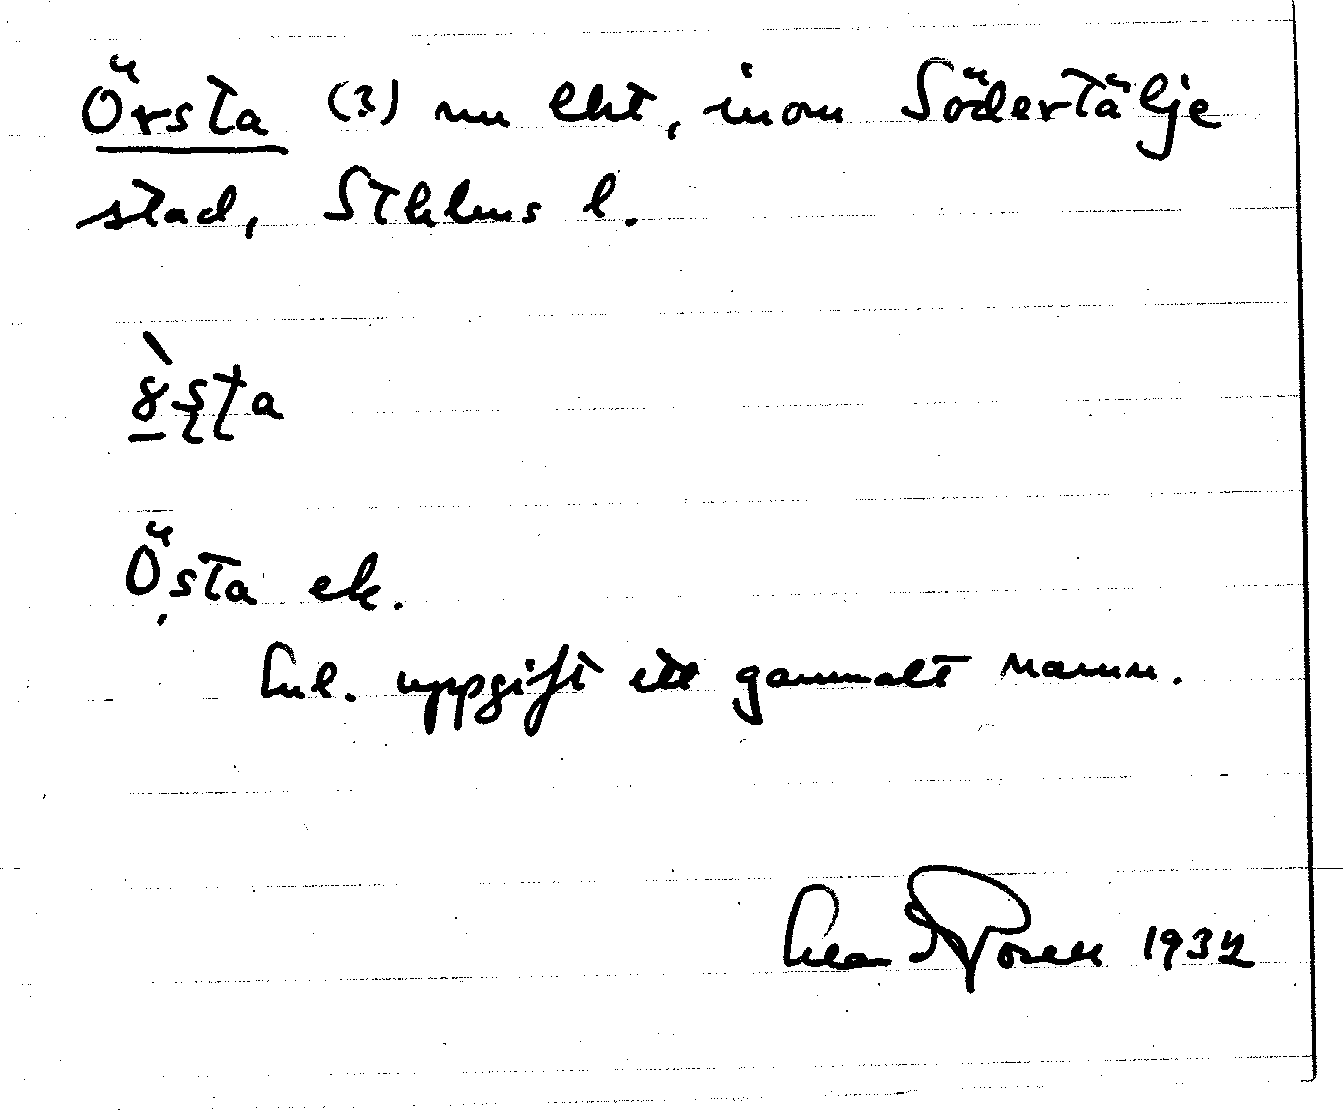 Örsta (3) nu lht, inom Södertälje
stad, Sthlms l.
Östa ek.
Enl. uppgift ett gammalt namn.
1932